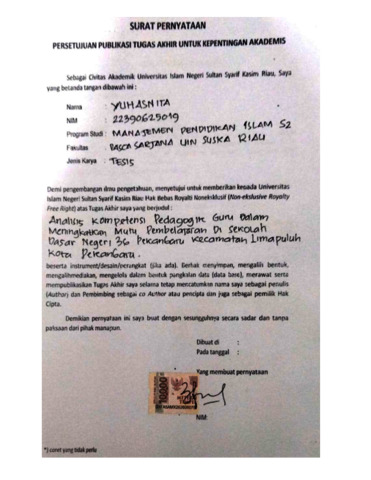 SURAT PERNYATAAN
PERSETUJUAN PUBLIKASI TUGAS AKHIR UNTUK KEPENTINGAN AKADEMIS
Sebagai Civitas Akademik Universitas Islam Negeri Sultan Syarif Kasim Riau, Saya
yang betanda tangan dibawah ini :
Nama : YUHASNITA
NIM : 22390625019
Program Studi : MANAJEMEN PENDIDIKAN ISLAM S2
Fakultas : PASCASARJANA UIN SUSKA RIAU
Jenis Karya : TESIS
Demi pengembangan ilmu pengetahuan, menyetujui untuk memberikan kepada Universitas
Islam Negeri Sultan Syarif Kasim Riau Hak Bebas Royalti Noneksklusif (Non-ekslusive Royalty
Free Right) atas Tugas Akhir saya yang berjudul :
Analisis Kompetensi Pedagogik Guru Dalam
Meningkatkan Mutu Pembelajaran Di Sekolah
Dasar Negeri 36 Pekanbaru Kecamatan Limapuluh
Kota Pekanbaru.
beserta instrument/desain/perangkat (jika ada). Berhak menyimpan, mengalih bentuk,
mengalihmediakan, mengelola dalam bentuk pangkalan data (data base), merawat serta
mempublikasikan Tugas Akhir saya selama tetap mencatumkan nama saya sebagai penulis
(Author) dan Pembimbing sebagai co Author atau pencipta dan juga sebagai pemilik Hak
Cipta.
Demikian pernyataan ini saya buat dengan sesungguhnya secara sadar dan tanpa
paksaan dari pihak manapun.
Dibuat di :
Pada tanggal :
Yang membuat pernyataan
10000
NIM:
*) coret yang tidak perlu